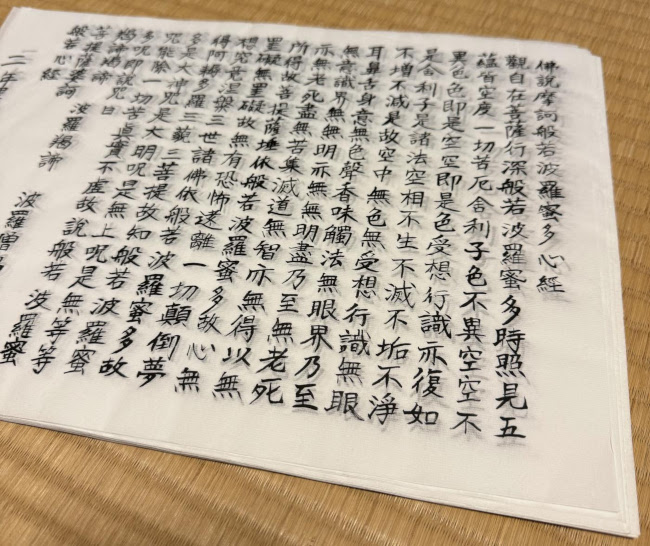 佛説摩訶般若波羅蜜多心経
觀自在菩薩行深般若波羅蜜多時照見五
蘊皆空度一切苦厄舍利子色不異空空不
異色色即是空空即是色受想行識亦復如
是舍利子是諸法空相不生不滅不垢不淨
不增不減是故空中無色無受想行識無眼
耳鼻舌身意無色聲香味觸法無眼界乃至
無意識界無無明亦無無明盡乃至無老死
亦無老死盡無苦集滅道無智亦無得以無
所得故菩提薩埵依般若波羅蜜多故心無
罣礙無罣礙故無有恐怖遠離一切顛倒夢
想究竟涅槃三世諸佛依般若波羅蜜多故
得阿耨多羅三藐三菩提故知般若波羅蜜
多是大神呪是大明呪是無上呪是無等等
呪能除一切苦真實不虚故説般若波羅蜜
多呪即説呪曰
羯諦羯諦 波羅羯諦 波羅僧
菩提薩婆訶
般若心経
二年